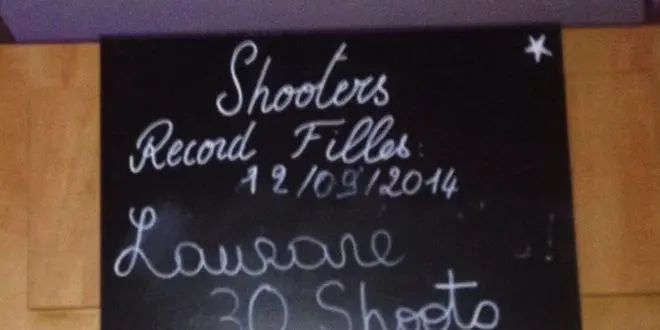 Shooters
Record Filles:
12/09/2014
Lausane
30 Shoots